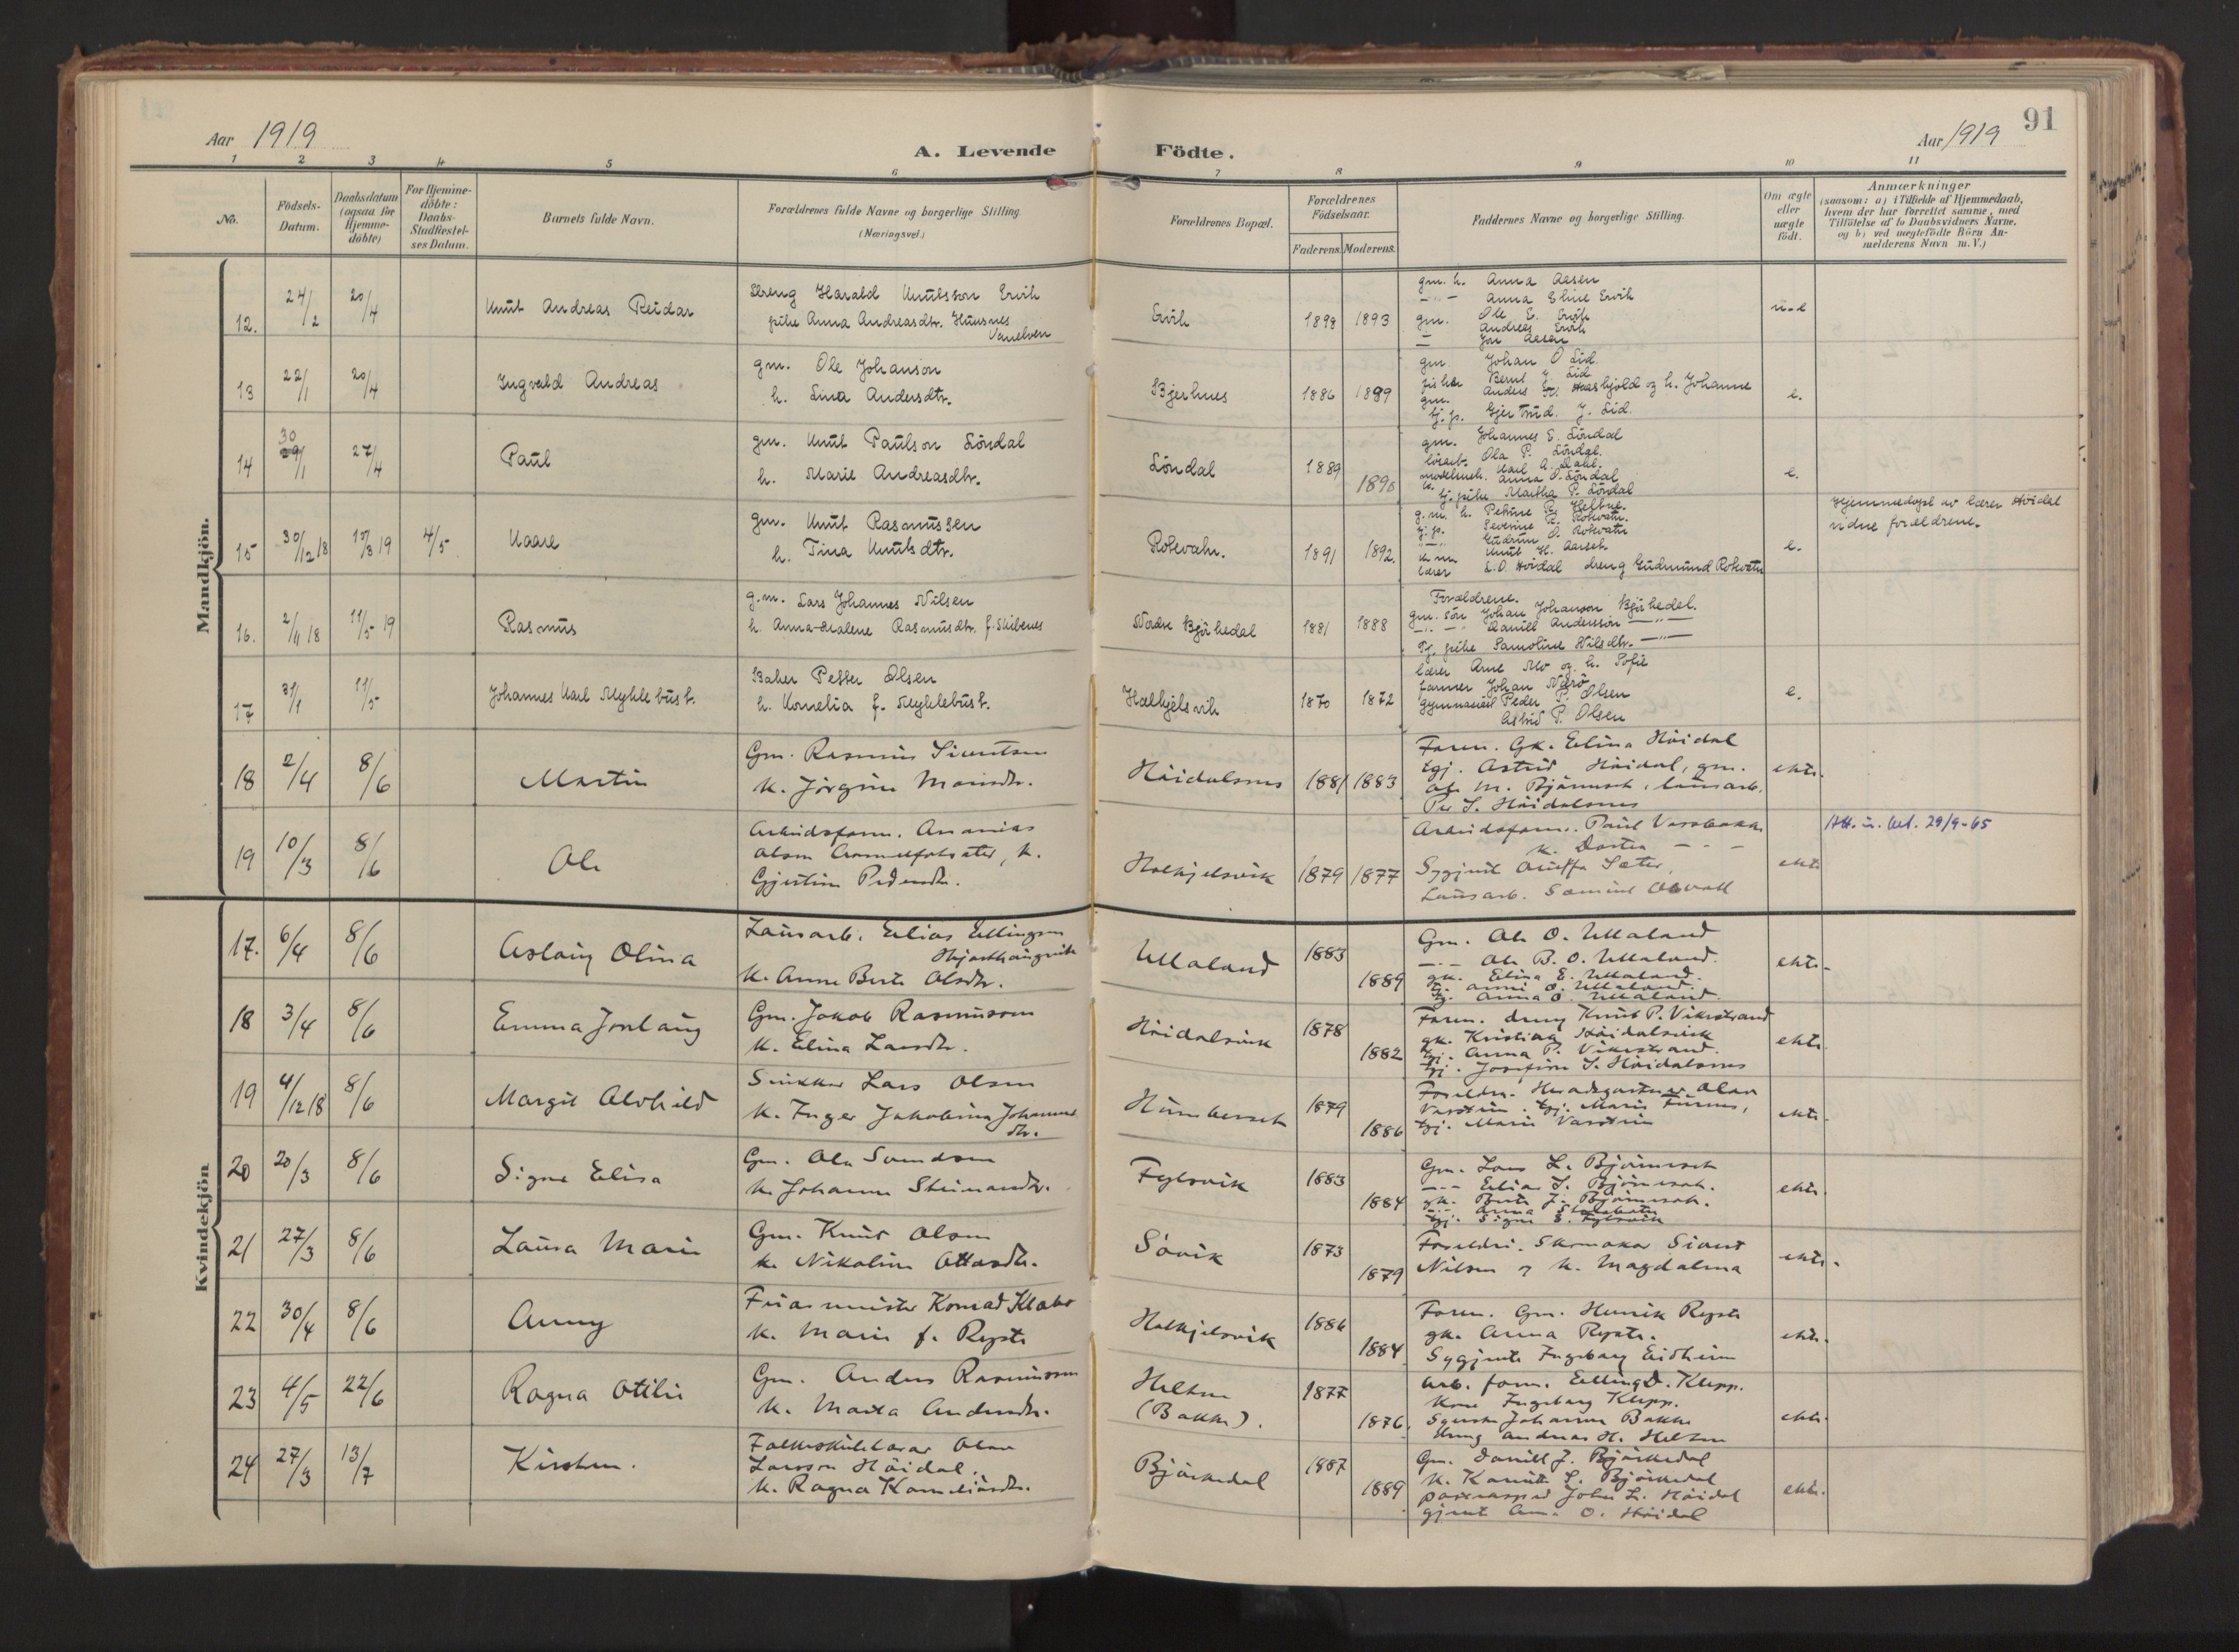 91
Aar 1919
A. Levende Födte.
Aar 1919
1 2 3 4 5 6 7 8 9 10 11
No.
Födsels-Datum.
Daabsdatum (ogsaa for Hjemme-döbte)
For Hjemme-döbte: Daabs-Stadfæstel-ses Datum.
Barnets fulde Navn.
Forældrenes fulde Navne og borgerlige Stilling.
(Næringsvei.)
Forældrenes Bopæl.
Forældrenes Födselsaar.
Faderens. Moderens.
Faddernes Navne og borgerlige Stilling.
Om ægte eller uægte födt.
Anmærkninger
(saasom: a) i Tilfælde af Hjemmedaab,
hvem der har forrettet samme, med
Tilföielse af to Daabsvidners Navne,
og b) ved uægtefödte Börn An-
melderens Navn m. V.)
Mandkjön.
12. 24/2 20/4 Knut Andreas Reidar
Dreng Harald Knutsson Ervik
pike Anna Andreasdtr. Husnes
Vanelven
Ervik 1898 1893
gm. h. Anna Aasen
Anna Eline Ervik
gm. Ole E. Ervik
Andreas Ervik
Jon Aasen
13 22/1 20/4 Ingvald Andreas
gm. Ole Johanson
h. Lina Andersdtr.
Bjerknes 1886 1889
gm. Johan O. Lid.
fisker Bernt J. Lid
gm. Anders K. Haskjold og h. Johanne
tj. p. Gjertrud J. Lid.
e.
14 30/1 27/4 Paul
gm. Knut Paulson Löndal
h. Marie Andreasdtr.
Löndal 1889 1890
gm. Johannes E. Löndal
lösarb. Ola P. Löndal.
Karl A. Dahl.
Anna O. Löndal
tj. pike Martha P. Löndal
e.
15 30/12 18 15/3 19 4/5 Kaare
gm. Knut Rasmussen
h. Tina Knutsdtr.
Rotevatn. 1891 1892.
g. m. h. Petrine R. Helkne.
tj. p. Severine K. Rotevatn.
Gudrun O. Rotevatn
Knut H. Aarseth
lærer L. O. Höidal dreng Gudmund Rotevatn
e.
Hjemmedöpt av lærer Höidal
vidne forældrene.
16. 2/11 18 11/5 19 Rasmus
g.m. Lars Johannes Nilsen
h. Anna-Malene Rasmusdtr. f. Skibenes
Nedre Björkedal 1881 1888
Forældrene.
gm. sön Johan Johanson Björkedal.
Daniel Andersson
Tj. pike Samoline Nilsdtr.
17 31/1 11/5 Johannes Karl Myklebust.
Baker Petter Olsen
h. Kornelia f. Myklebust.
Halkjelsvik 1870 1872
lærer Arne Mo og h. Sofie
farmer Johan Nærö
gymnasiast Peder P. Olsen
Astrid P. Olsen
e.
18 2/4 8/6 Martin
Gm. Rasmus Sivertsen
K. Jörgine Monsdtr.
Höidalsnes 1881 1883
Faren. Gk. Elina Höidal
tgj. Astrid Höidal, gm.
Ole M. Björneset, lausarb.
Per S. Höidalsnes
ekte.
19 10/3 8/6 Ole
Arbeidsform. Ananias
Olsen, K.
Gjertine Pedersdtr.
Halkjelsvik 1879 1877
Arbeidsform. Paul Vassbakk
K. Dortea
Sygjent Oluffa Sæter,
Lausarb. Samuel Aavoll
ekte
29/9-65
Kvindekjön
17. 6/4 8/6 Aslaug Olina
Lausarb. Elias Ellingsen
K. Anne Berte Olsdtr.
Ulvaland 1883 1889
Gm. Ole O. Ulvaland
Ole B. O. Ulvaland.
gk. Elina E. Ulvaland.
tj. Anna O. Ulvaland.
ekte.
18 3/4 8/6 Emma Jonlaug
Gm. Jakob Rasmusson
K. Elina Larsdtr.
Höidalsvik 1878 1882
Faren. dreng Knut P. Vikestrand
gk. Kristian Höidalsvik
tgj. Anna P. Vikestrand.
tgj. Josefine S. Höidalsnes
ekte.
19 4/12 18 8/6 Margit Alvhild
Snikkar Lars Olsen
K. Inger Jakobina Johannes
dtr.
Humberset 1879 1886
Foreldre. Heradsgartnar Olav
Vasstun. tgj. Marie Furnes,
tgj. Marie Vasstun
ekte.
20 20/3 8/6 Signe Elisa
Gm. Ola Svendsen
K. Johanne Steinarsdtr.
Fylsvik 1883 1884
Gm. Lars L. Björneset
Elias S. Björneset.
gk. Berte J. Björneset.
tgj. Signe S. Fylsvik
ekte.
21 27/3 8/6 Laura Marie
Gm. Knut Olsen
K. Nikoline Ottarsdtr.
Sövik 1873 1879
Foreldri. Skomakar Sivert
Nilsen og K. Magdalena
ekte.
22 30/4 8/6 Anny
Konrad Klabo
K. Marie f. Rysti
Halkjelsvik 1886 1884
Faren. Gm. Henrik Ryste
gk. Anna Ryste.
Sygjente Ingeborg Eidheim
ekte.
23 4/5 22/6 Ragna Otilie
Gm. Anders Rasmussen
K. Marta Andersdtr.
Helkne
(Bakke). 1877 1876.
Arb. form. Elling D. Klepp.
Kone Ingeborg Klepp.
Johanne Bakke
dreng Andreas H. Helkne
ekte.
24 27/3 13/7 Kirsten.
Folkeskulelærar Olav
Larsson Höidal,
K. Ragna Korneliusdtr.
Björkedal 1887 1889
Gm. Daniel J. Björkedal
K. S. Björkedal
John L. Höidal
gjente O. Höidal
ekte.